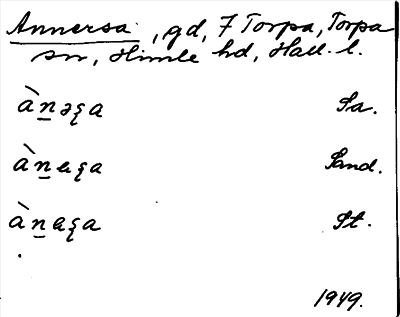 Annersa, gd, 7 Torpa, Torpa
sn, Himle hd, Hall. l.
ànəʂa Sa.
ànɐʂa Sand.
ànɐʂa St.
1949.